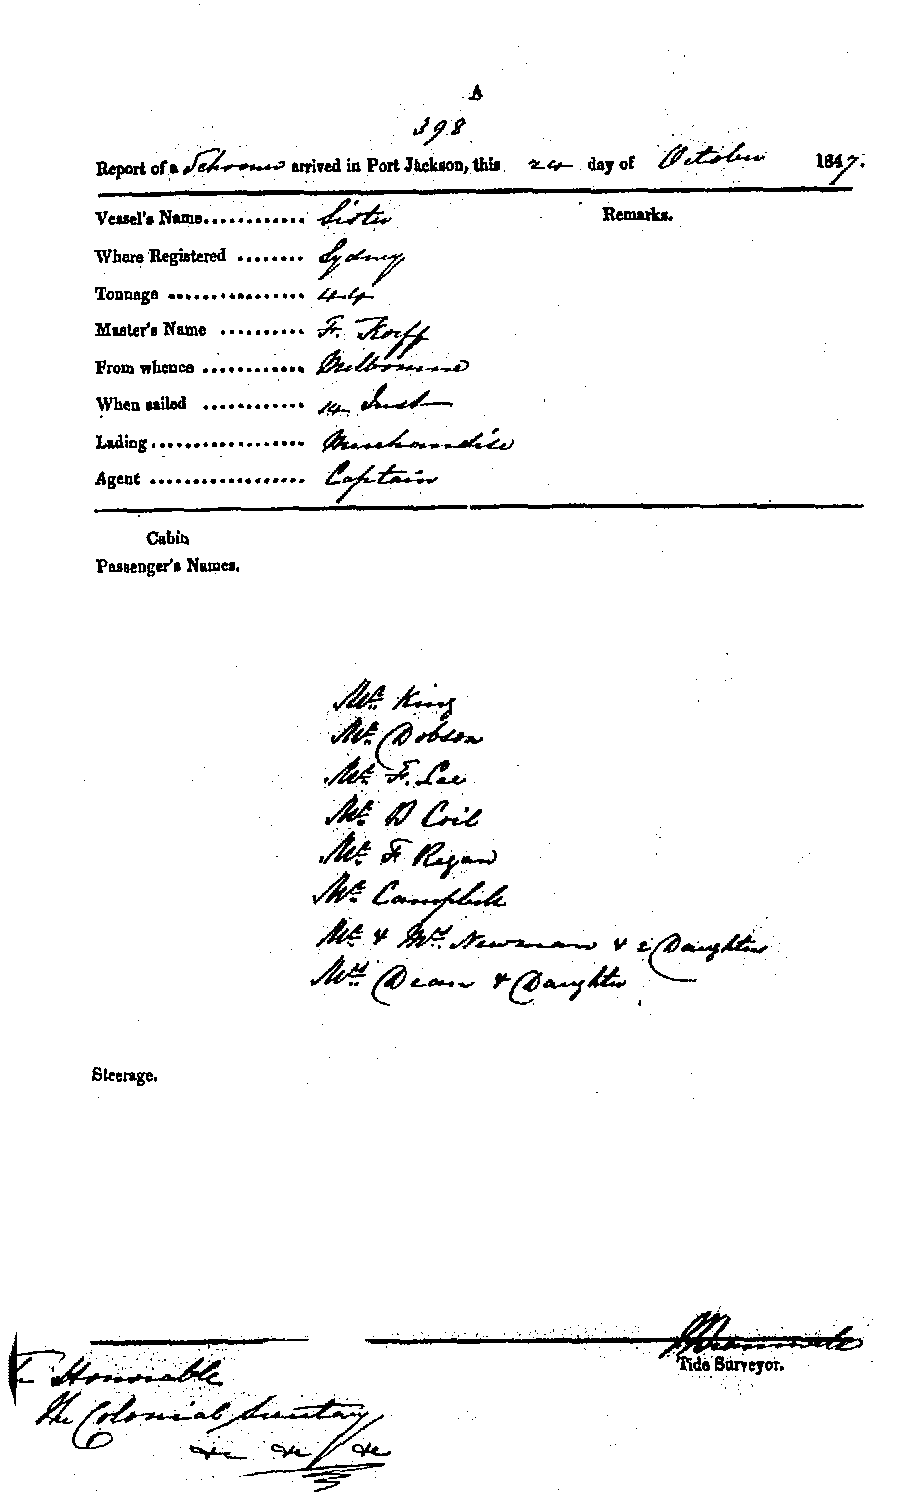 A
398
Report of a Schooner arrived in Port Jackson, this 24 day of October 1847.
Vessel's Name............ Sister
Remarks.
Where Registered ........ Sydney
Tonnage .................. 44
Master's Name .......... Fr. Korff
From whence ............ Melbourne
When sailed ............ 14 Inst
Lading.................. Merchandise
Agent .................. Captain
Cabin
Passenger's Names.
Mr. King
Mr. Dobson
Mr. F. Lee
Mr. D Coil
Mr. F Regan
Mr. Campbell
Mr. & Mrs. Newman & 2 Daughters
Mrs. Dean & Daughter
Steerage.
Tide Surveyor.
Honorable
The Colonial Secretary
&c &c &c